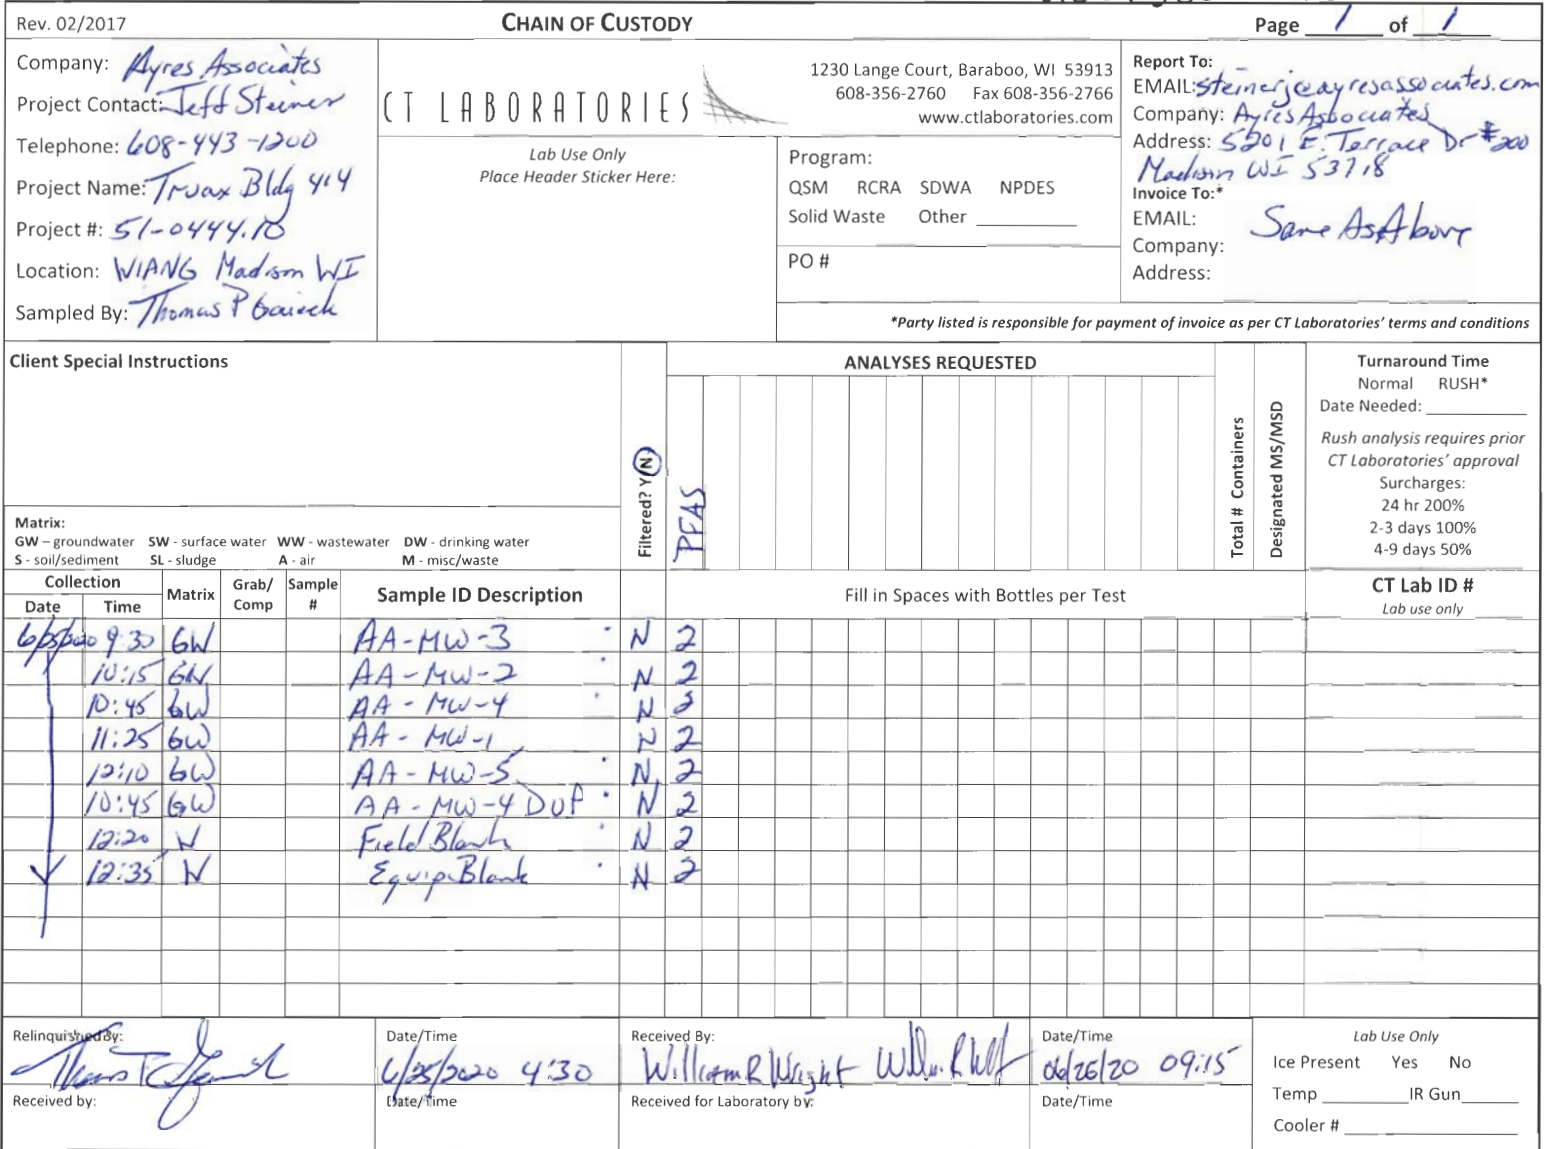 Rev. 02/2017 CHAIN OF CUSTODY Page 1 of 1
Company: Ayres Associates
Project Contact: Jeff Steiner
Telephone: 608-443-1200
Project Name: Truax Bldg 414
Project #: 51-0444.10
Location: WIANG Madison WI
Sampled By: Thomas P
CT LABORATORIES
1230 Lange Court, Baraboo, WI 53913
608-356-2760 Fax 608-356-2766
www.ctlaboratories.com
Lab Use Only
Place Header Sticker Here:
Program:
QSM RCRA SDWA NPDES
Solid Waste Other
PO #
Report To:
EMAIL: steinerj@ayresassociates.com
Company: Ayres Associates
Address: 5201 E. Terrace Dr #200
Madison WI 53718
Invoice To:*
EMAIL: Same As Above
Company:
Address:
*Party listed is responsible for payment of invoice as per CT Laboratories' terms and conditions
Client Special Instructions
Matrix:
GW – groundwater SW - surface water WW - wastewater DW - drinking water
S - soil/sediment SL - sludge A - air M - misc/waste
Filtered? Y/N
ANALYSES REQUESTED
PFAS
Total # Containers
Designated MS/MSD
Turnaround Time
Normal RUSH*
Date Needed:
Rush analysis requires prior
CT Laboratories' approval
Surcharges:
24 hr 200%
2-3 days 100%
4-9 days 50%
Collection
Date Time Matrix Grab/Comp Sample # Sample ID Description Fill in Spaces with Bottles per Test CT Lab ID #
Lab use only
6/25/2020 9:30 GW AA-MW-3 N 2
10:15 GW AA-MW-2 N 2
10:45 GW AA-MW-4 N 2
11:25 GW AA-MW-1 N 2
12:10 GW AA-MW-5 N 2
10:45 GW AA-MW-4 DUP N 2
12:20 W Field Blank N 2
12:35 W Equip. Blank N 2
Relinquished By: Date/Time Received By: Date/Time
6/25/2020 4:30 William R Wright 06/26/20 09:15
Received by: Date/Time Received for Laboratory by: Date/Time
Lab Use Only
Ice Present Yes No
Temp IR Gun
Cooler #